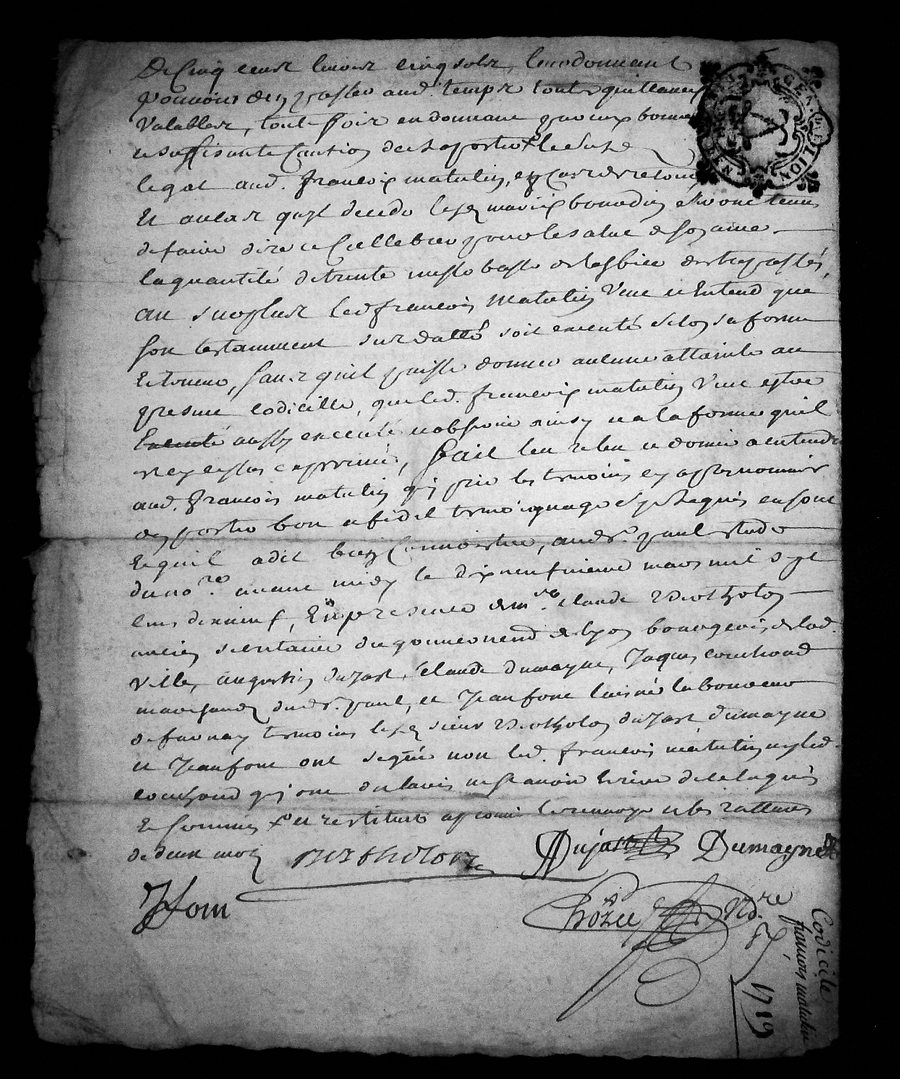 De Cinq cens livres cinq sols, leur donnant
pouvoir d'en passer aud. temps toute quittance
Valables, toute fois en donnant par eux bonne
et suffisante Caution de rapporter le susd.
legat aud. françois matalin, en cas de retour
Et au cas quil decede les mariés seront tenus
de faire dire et Cellebrer pour le salut de son ame
la quantité de trente messe basse de des trepassés,
au surplus led françois matalin Veut et Entend que
son testamment sur datté soit executé selon sa forme
Et teneur, sans quil puisse donner aucune attainte au
presant codicille, que led. françois matalin Veut estre
aussy executé et observé ainsy et a la forme quil
est cy dessus exprimé, fait leu releu et donné a entendre
aud. françois matalin qui prie les temoins cy apres nommés
den porter bon et fidel temoignage requis en sont
Et quil a dit bien Connoistre, aud. st. paul estude
du no.re avant midy le dix neufvieme mars mil sept
cens dix neuf, En presence de m.re Claude Bertholon
ancien secretaire du gouvernement de lyon bourgeois de lad.
ville, augustin dujast, Claude dumayne, Jaques couchoud
marchands dud. st. paul, et Jean font laisné laboureur
de temoins les sieurs Bertholon dujast dumayne
et Jean font ont signé non led. françois matalin ny led.
couchoud qui ont declarés ne scavoir Ecrire de ce enquis
Et sommés et restitués approuvé le renvoye et les ratures
de deux mots Bertholon Dujast Dumayne
JFont
Nore
1719
Codicile
françois matalin